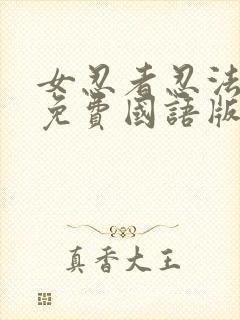 女忍者忍法
免費國語版
真香大王